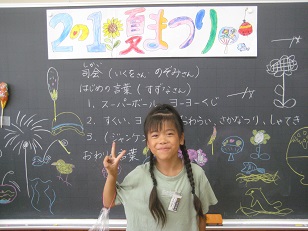 2の1夏まつり
しかい
司会(いくをさん のぞみさん)
はじめの言葉(すずなさん)
1. スーパーボール ヨーヨーくじ
2. すくい、ヨ わらい、さかなつり、しゃてき
3. (ジャンケン
おわり 葉